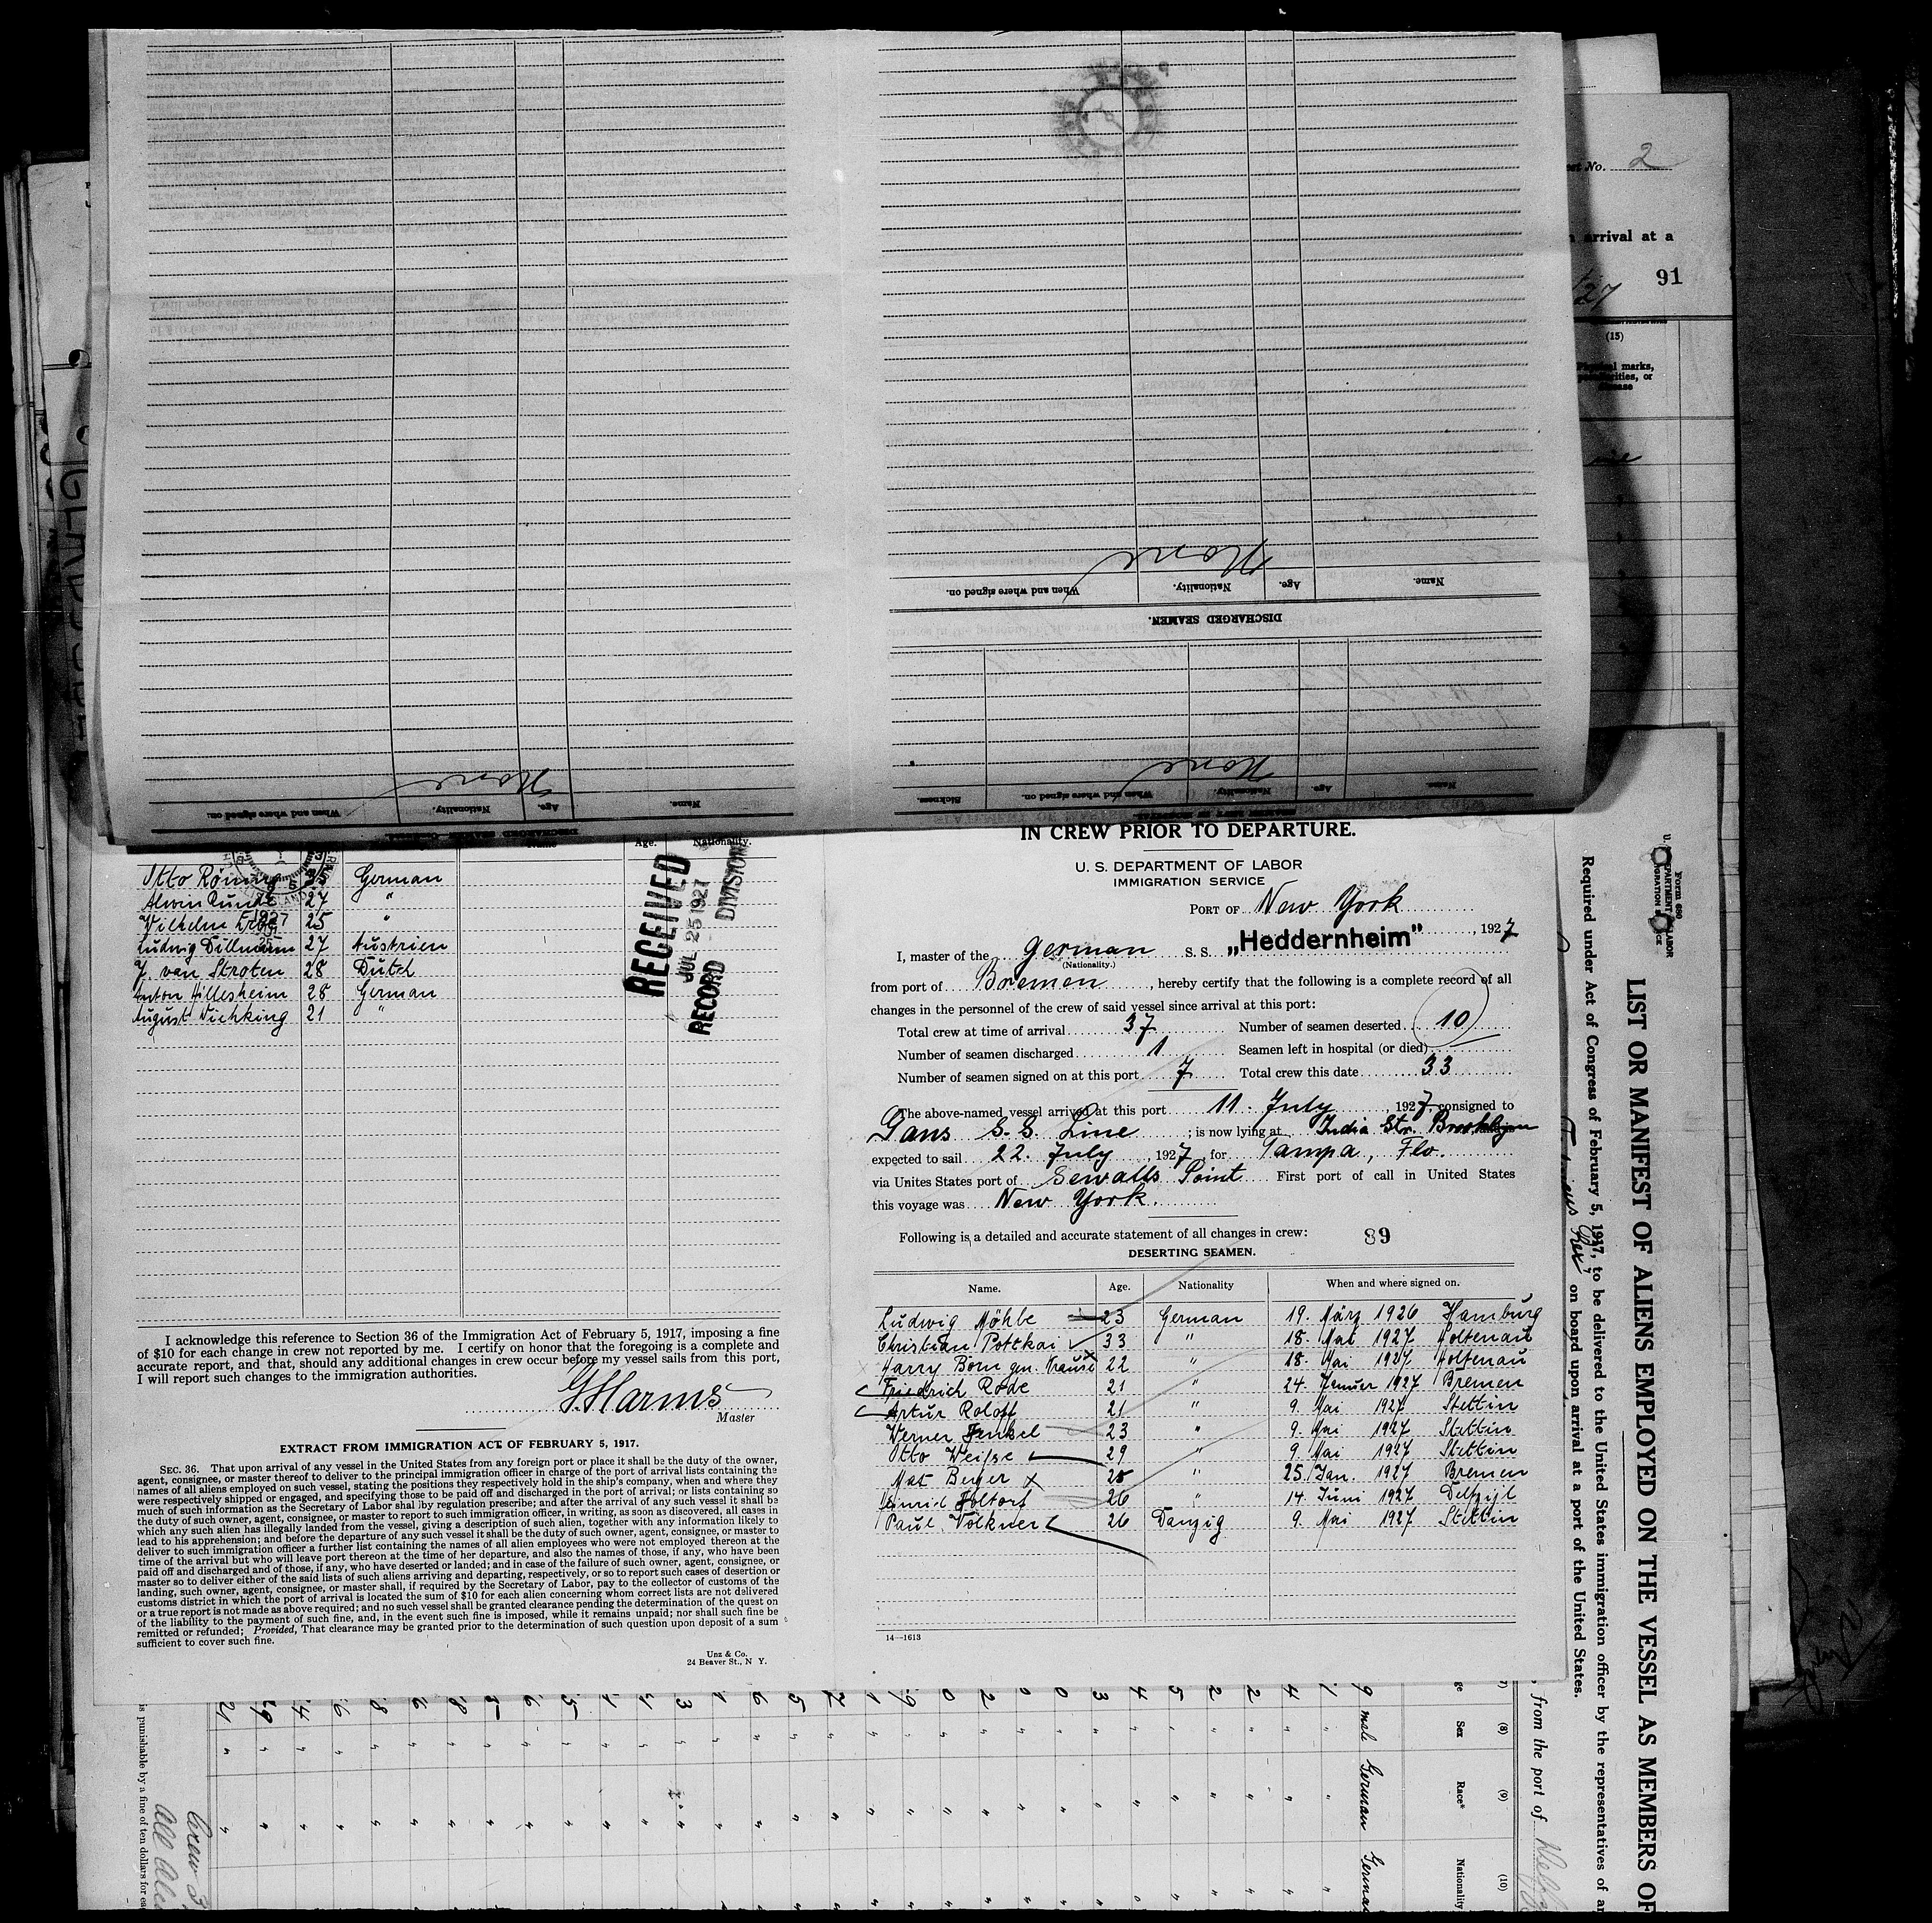 Sheet No. 2
arrival at a
91
27
(15)
Physical marks, peculiarities, or disease
Name.
Age.
Nationality.
When and where signed on.
None
DISCHARGED SEAMEN.
Name.
Age.
Nationality.
When and where signed on.
Sickness.
None
Name.
Age.
Nationality.
When and where signed on.
None
Name
Age.
Nationality.
Otto 25 German
Alwin 27 "
Wilhelm 25 "
Ludwig Dillmann 27 Austrien
J. van Stroten 28 Dutch
Anton Hillesheim 28 German
August Wiehking 21 "
RECEIVED
JUL 25 1927
RECORD DIVISION
I acknowledge this reference to Section 36 of the Immigration Act of February 5, 1917, imposing a fine
of $10 for each change in crew not reported by me. I certify on honor that the foregoing is a complete and
accurate report, and that, should any additional changes in crew occur before my vessel sails from this port,
I will report such changes to the immigration authorities.
G. Harms
Master
EXTRACT FROM IMMIGRATION ACT OF FEBRUARY 5, 1917.
SEC. 36. That upon arrival of any vessel in the United States from any foreign port or place it shall be the duty of the owner,
agent, consignee, or master thereof to deliver to the principal immigration officer in charge of the port of arrival lists containing the
names of all aliens employed on such vessel, stating the positions they respectively hold in the ship's company, when and where they
were respectively shipped or engaged, and specifying those to be paid off and discharged in the port of arrival; or lists containing so
much of such information as the Secretary of Labor shal lby regulation prescribe; and after the arrival of any such vessel it shall be
the duty of such owner, agent, consignee, or master to report to such immigration officer, in writing, as soon as discovered, all cases in
which any such alien has illegally landed from the vessel, giving a description of such alien, together with any information likely to
lead to his apprehension; and before the departure of any such vessel it shall be the duty of such owner, agent, consignee, or master to
deliver to such immigration officer a further list containing the names of all alien employees who were not employed thereon at the
time of the arrival but who will leave port thereon at the time of her departure, and also the names of those, if any, who have been
paid off and discharged and of those, if any, who have deserted or landed; and in case of the failure of such owner, agent, consignee, or
master so to deliver either of the said lists of such aliens arriving and departing, respectively, or so to report such cases of desertion or
landing, such owner, agent, consignee, or master shall, if required by the Secretary of Labor, pay to the collector of customs of the
customs district in which the port of arrival is located the sum of $10 for each alien concerning whom correct lists are not delivered
or a true report is not made as above required; and no such vessel shall be granted clearance pending the determination of the quest on
of the liability to the payment of such fine, and, in the event such fine is imposed, while it remains unpaid; nor shall such fine be
remitted or refunded; Provided, That clearance may be granted prior to the determination of such question upon deposit of a sum
sufficient to cover such fine.
Unz & Co.
24 Beaver St., N Y.
IN CREW PRIOR TO DEPARTURE.
U. S. DEPARTMENT OF LABOR
IMMIGRATION SERVICE
PORT OF New York
, 1927
I, master of the german S. S. „Heddernheim"
(Nationality.)
from port of Bremen, hereby certify that the following is a complete record of all
changes in the personnel of the crew of said vessel since arrival at this port:
Total crew at time of arrival 37 Number of seamen deserted 10
Number of seamen discharged 1 Seamen left in hospital (or died)
Number of seamen signed on at this port 7 Total crew this date 33
The above-named vessel arrived at this port 11. July, 1927, consigned to
Gans S. S. Line; is now lying at India Str. Brooklyn
expected to sail 22. July, 1927, for Tampa, Flo.
via Unites States port of Sewalls Point First port of call in United States
this voyage was New York.
Following is a detailed and accurate statement of all changes in crew: 89
DESERTING SEAMEN.
Name. Age. Nationality When and where signed on.
Ludwig Möhbe 23 German 19. März 1926 Hamburg
Christian Potzkai 33 " 18. Mai 1927 Holtenau
Harry Born gen. Krause 22 " 18. Mai 1927 Holtenau
Friedrich Rode 21 " 24. Januar 1927 Bremen
Artur Roloff 21 " 9. Mai 1927 Stettin
Werner Henkel 23 " 9. Mai 1927 Stettin
Otto Weisse 29 " 9. Mai 1927 Stettin
Mat Berger 28 " 25. Jan. 1927 Bremen
Holtorf 26 " 14. Juni 1927 Delfzijl
Paul Völkner 26 Danzig 9. Mai 1927 Stettin
14—1613
Form 689
U. S. DEPARTMENT OF LABOR
IMMIGRATION SERVICE
LIST OR MANIFEST OF ALIENS EMPLOYED ON THE VESSEL AS MEMBERS OF
Required under Act of Congress of February 5, 1917, to be delivered to the United States immigration officer by the representatives of
on board upon arrival at a port of the United States.
, from the port of
(8) Sex
(9) Race*
(10) Nationality
male German German
is punishable by a fine of ten dollars for
Crew